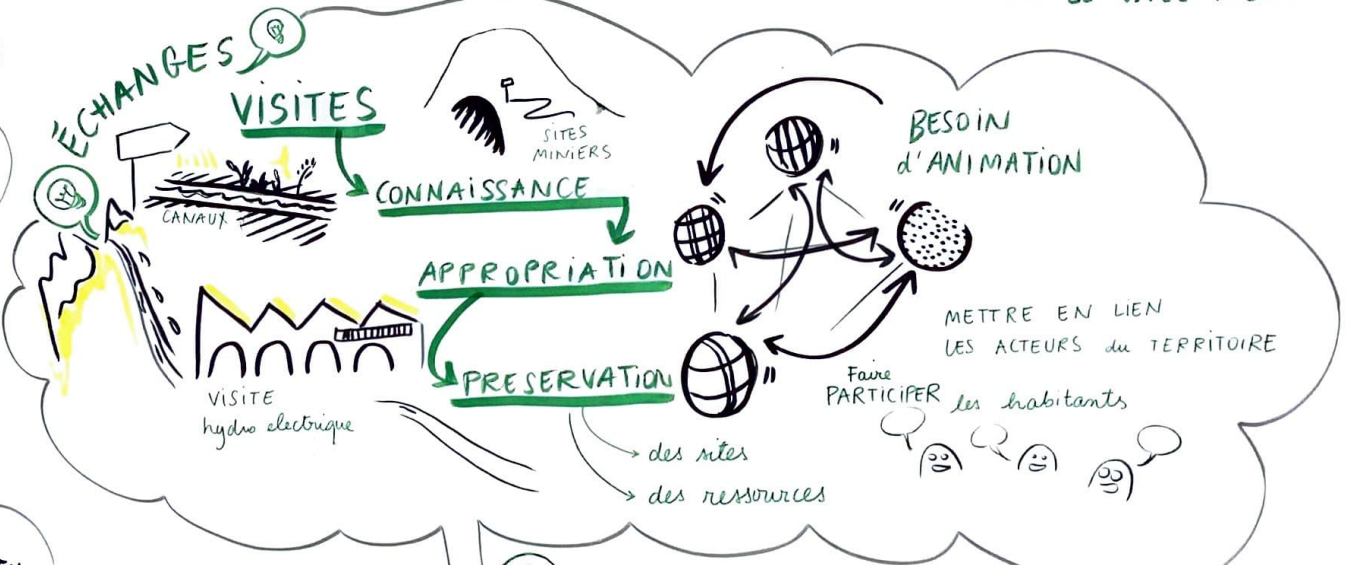 ÉCHANGES
VISITES
SITES
MINIERS
CONNAISSANCE
CANAUX
APPROPRIATION
VISITE
hydro electrique
PRESERVATION
des sites
des ressources
BESOIN
d'ANIMATION
METTRE EN LIEN
LES ACTEURS du TERRITOIRE
Faire
PARTICIPER les habitants